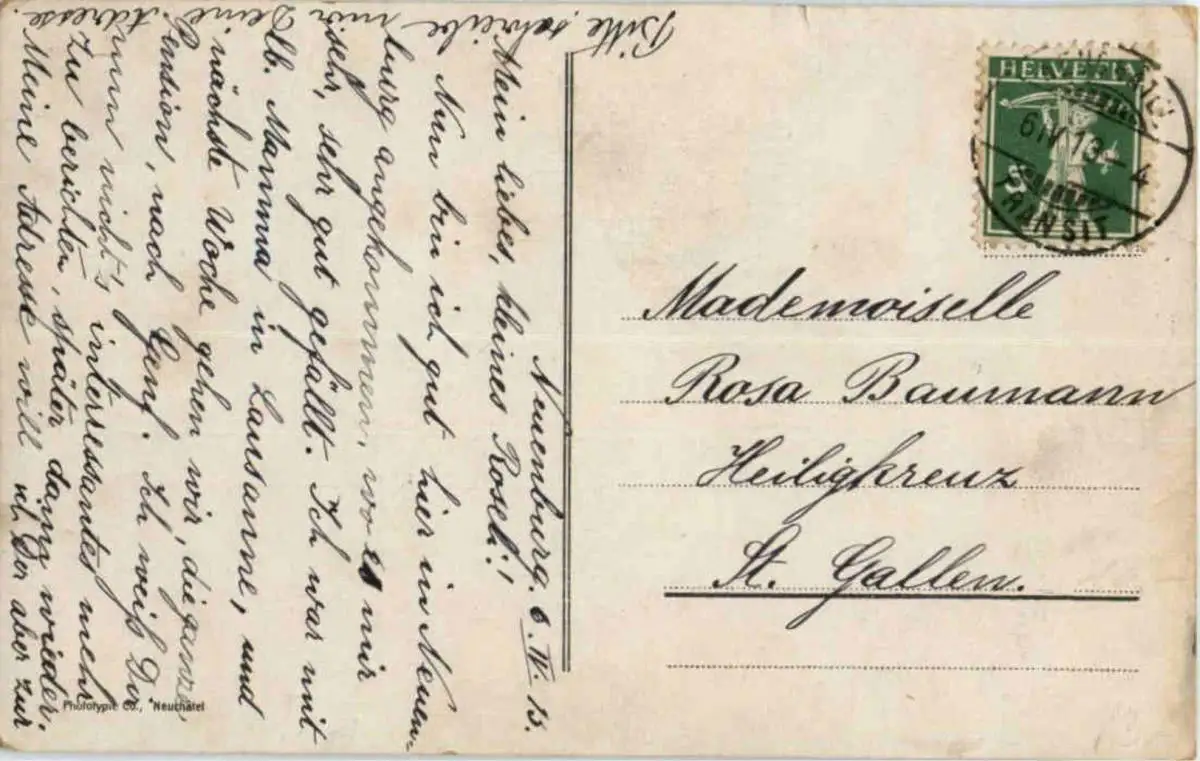 Neuenburg. 6. IV. 13.
Mein liebes, kleines Roseli!
Nun bin ich gut hier in Neuen-
burg angekommen, wo es mir
sehr, sehr gut gefällt. Ich war mit
Mamma in Lausanne, und
nächste Woche gehen wir, die ganze
Pension, nach Genf. Ich weiß Dir
nun nicht's interessantes mehr
zu berichten, später dann wieder.
Meine Adresse will aber zur
Bitte schreibe mir Deine Adresse.
Phototypie Co., Neuchâtel
HELVETIA
5
6 IV 13 - 4
TRANSIT
Mademoiselle
Rosa Baumann
Heiligkreuz
St. Gallen.